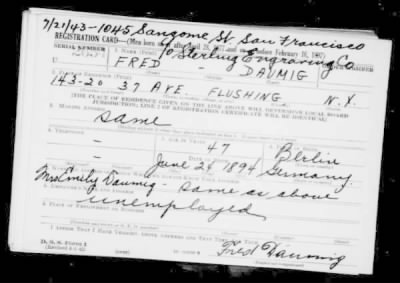 7/21/43-1045 Sansome St San Francisco
c/o Sterling Engraving Co
REGISTRATION CARD—(Men born on or after April 28, 1877 and on or before February 16, 1897)
SERIAL NUMBER
1. NAME (Print)
FRED — DAUMIG
143-20 37 AVE. FLUSHING N.Y.
[THE PLACE OF RESIDENCE GIVEN ON THE LINE ABOVE WILL DETERMINE LOCAL BOARD
JURISDICTION; LINE 2 OF REGISTRATION CERTIFICATE WILL BE IDENTICAL]
3. MAILING ADDRESS
same
4. TELEPHONE
5. AGE IN YEARS
6. PLACE OF BIRTH
— 47 Berlin
— June 24 1894 Germany
Mrs Emily Daumig - same as above
unemployed
I AFFIRM THAT I HAVE VERIFIED ABOVE ANSWERS AND THAT THEY ARE TRUE.
D. S. S. Form 1
Fred Daumig